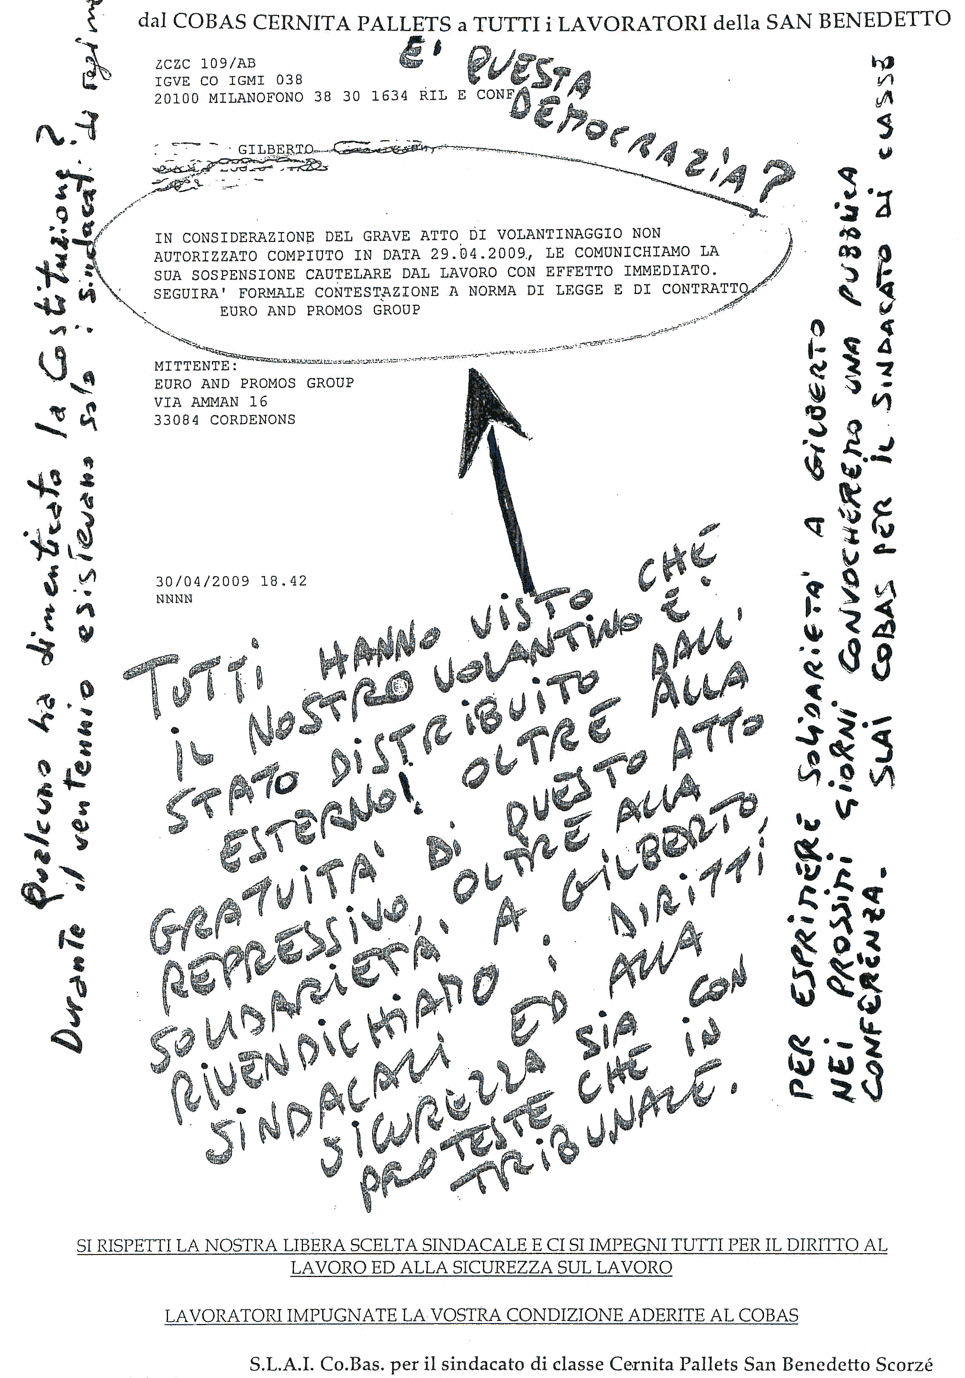 dal COBAS CERNITA PALLETS a TUTTI i LAVORATORI della SAN BENEDETTO
ZCZC 109/AB
IGVE CO IGMI 038
20100 MILANOFONO 38 30 1634 RIL E CONF
E' QUESTA
DEMOCRAZIA?
GILBERTO
IN CONSIDERAZIONE DEL GRAVE ATTO DI VOLANTINAGGIO NON
AUTORIZZATO COMPIUTO IN DATA 29.04.2009, LE COMUNICHIAMO LA
SUA SOSPENSIONE CAUTELARE DAL LAVORO CON EFFETTO IMMEDIATO.
SEGUIRA' FORMALE CONTESTAZIONE A NORMA DI LEGGE E DI CONTRATTO
EURO AND PROMOS GROUP
MITTENTE:
EURO AND PROMOS GROUP
VIA AMMAN 16
33084 CORDENONS
30/04/2009 18.42
NNNN
Qualcuno ha dimenticato la Costituzione?
Durante il ventennio esistevano solo i sindacati di regime
TUTTI HANNO VISTO CHE
IL NOSTRO VOLANTINO E'
STATO DISTRIBUITO DALL'
ESTERNO! OLTRE ALLA
GRATUITA' DI QUESTO ATTO
REPRESSIVO, OLTRE ALLA
SOLIDARIETA' A GILBERTO,
RIVENDICHIAMO i DIRITTI
SINDACALI ED ALLA
SICUREZZA SIA CON
PROTESTE CHE IN
TRIBUNALE.
PER ESPRIMERE SOLIDARIETA' A GILBERTO
NEI PROSSIMI GIORNI CONVOCHEREMO UNA PUBBLICA
CONFERENZA. SLAI COBAS PER IL SINDACATO DI CLASSE
SI RISPETTI LA NOSTRA LIBERA SCELTA SINDACALE E CI SI IMPEGNI TUTTI PER IL DIRITTO AL
LAVORO ED ALLA SICUREZZA SUL LAVORO
LAVORATORI IMPUGNATE LA VOSTRA CONDIZIONE ADERITE AL COBAS
S.L.A.I. Co.Bas. per il sindacato di classe Cernita Pallets San Benedetto Scorzé